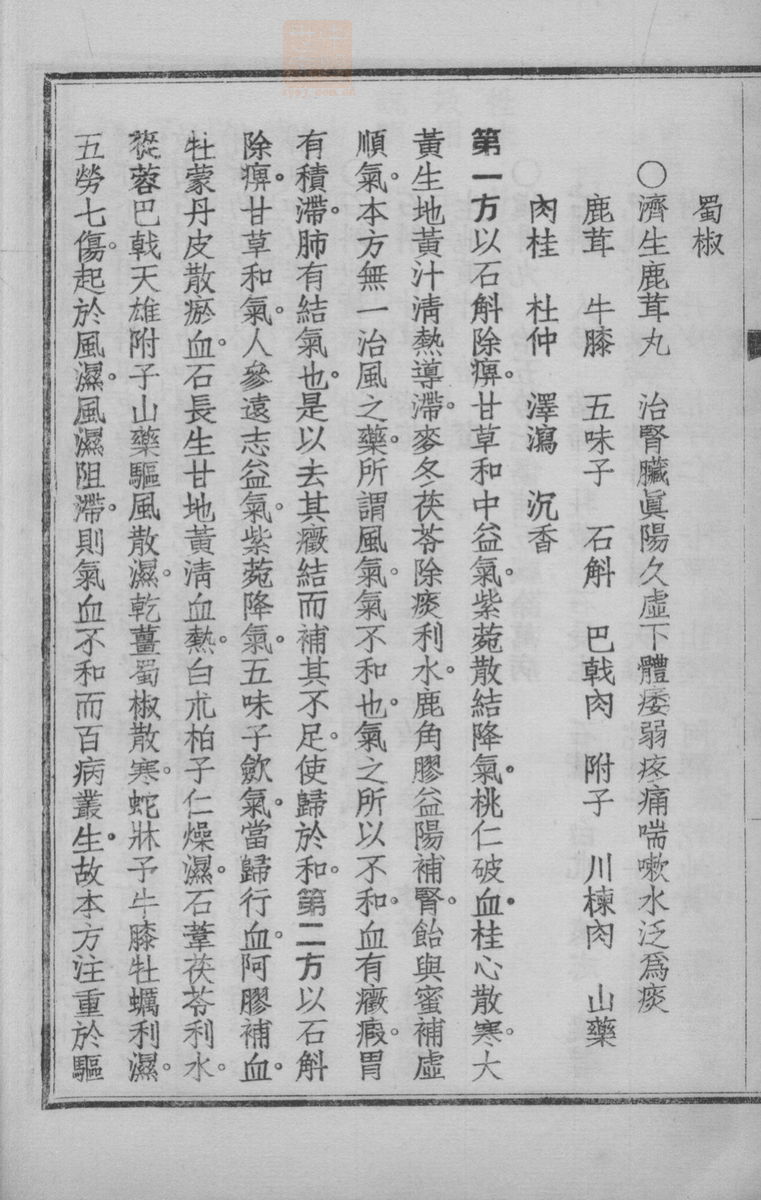 蜀椒
〇濟生鹿茸丸　治腎臟眞陽久虛下體痿弱疼痛喘嗽水泛爲痰
鹿茸　牛膝　五味子　石斛　巴戟肉　附子　川楝肉　山藥
肉桂　杜仲　澤瀉　沉香
第一方以石斛除痹。甘草和中益氣。紫菀散結降氣。桃仁破血。桂心散寒。大
黃生地黃汁淸熱導滯。麥冬茯苓除痰利水。鹿角膠益陽補腎。飴與蜜補虛
順氣。本方無一治風之藥。所謂風氣。氣不和也。氣之所以不和。血有癥瘕。胃
有積滯。肺有結氣也。是以去其癥結而補其不足。使歸於和。第二方以石斛
除痹。甘草和氣。人參遠志益氣。紫菀降氣。五味子歛氣。當歸行血。阿膠補血。
牡蒙丹皮散瘀血。石長生甘地黃淸血熱。白朮柏子仁燥濕。石葦茯苓利水。
蓯蓉巴戟天雄附子山藥驅風散濕。乾薑蜀椒散寒。蛇牀子牛膝牡蠣利濕。
五勞七傷。起於風濕。風濕阻滯。則氣血不和而百病叢生。故本方注重於驅